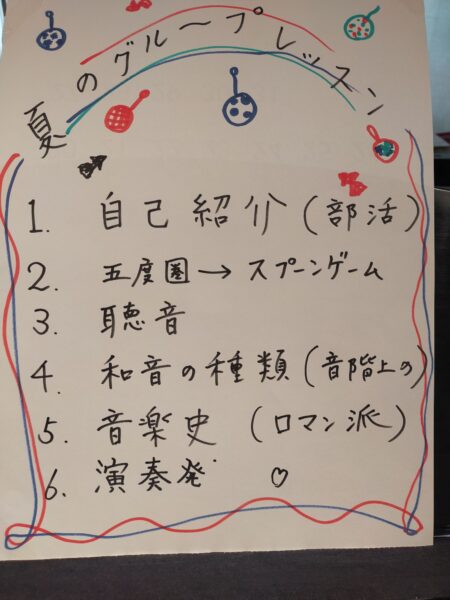 夏のグループレッスン
1. 自己紹介(部活)
2. 五度圏→スプーンゲーム
3. 聴音
4. 和音の種類(音階上の)
5. 音楽史(ロマン派)
6. 演奏発 ♡